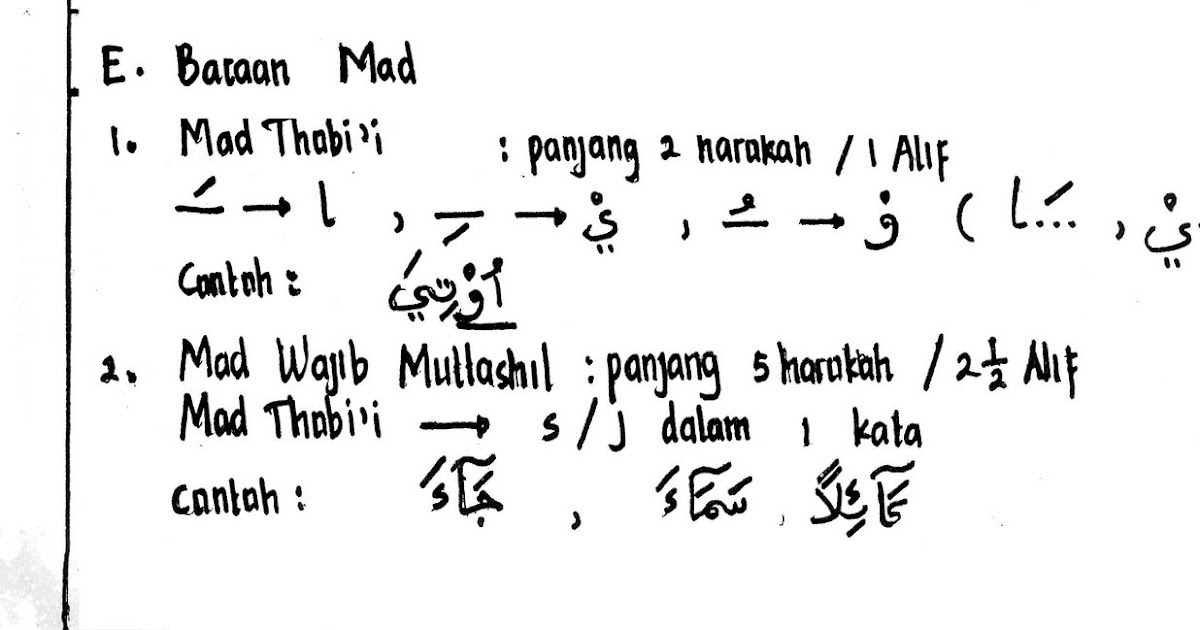 E. Bacaan Mad
1. Mad Thabi'i : panjang 2 harakah / 1 Alif
ـَ → ا , ـِ → يْ , ـُ → وْ ( ـَا... , يْ
Contoh : اُوْتِيَ
2. Mad Wajib Muttashil : panjang 5 harakah / 2 ½ Alif
Mad Thabi'i → ء / dalam 1 kata
contoh : جَآءَ , سَمَآءَ ,